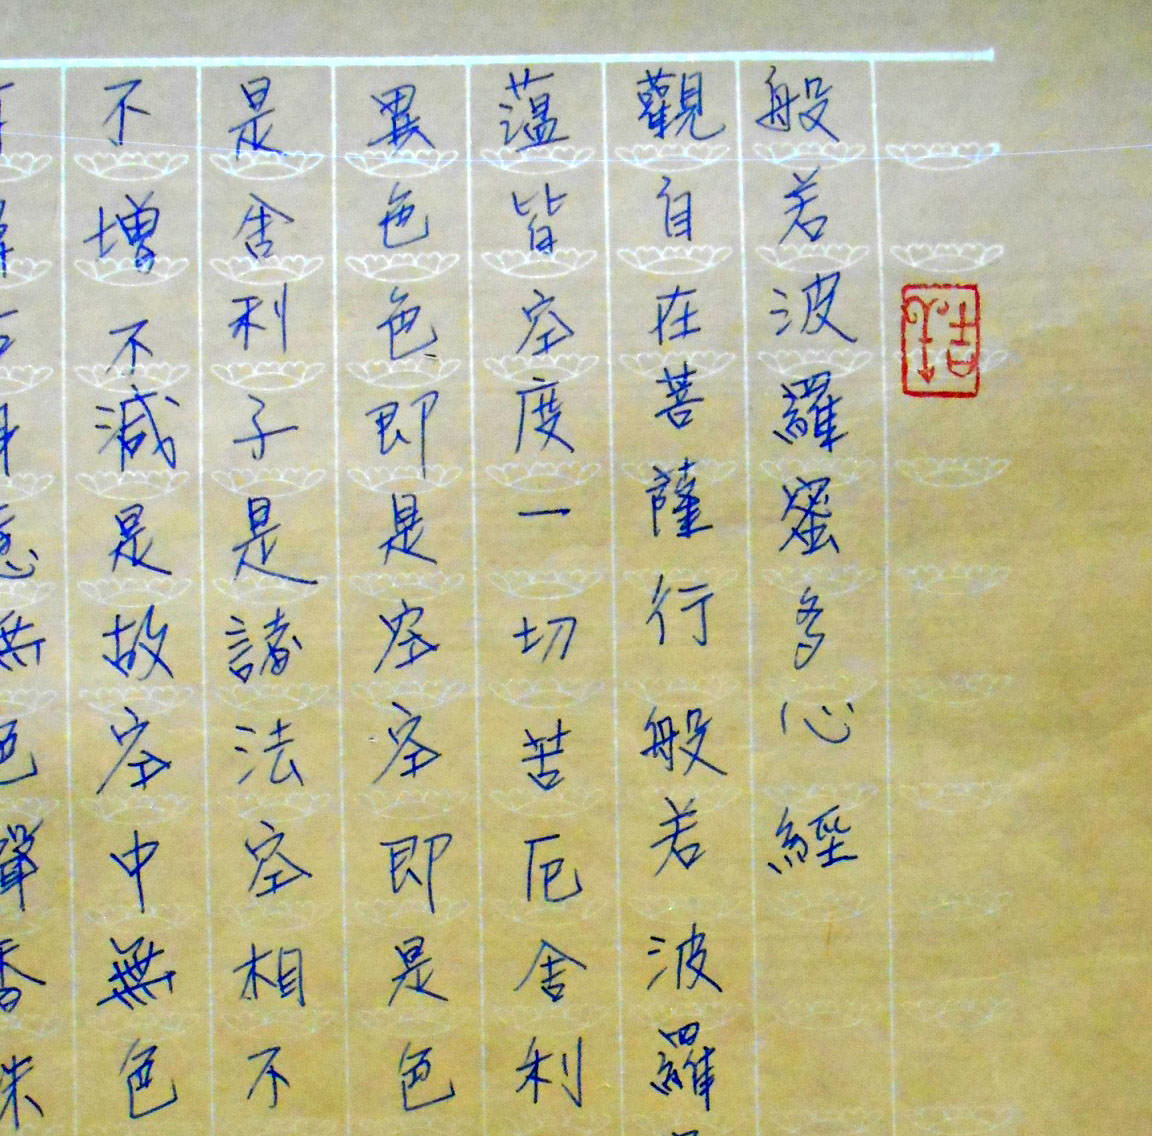 般若波羅蜜多心經
觀自在菩薩行般若波羅
蕰皆空度一切苦厄舍利
異色色即是空空即是色
是舍利子是諸法空相不
不增不減是故空中無色
無色聲香